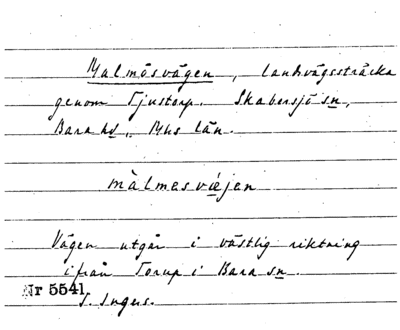 Malmövägen, landsvägssträcka
genom Tjustorp. Skabersjö sn,
Bara hd, Mhs län.
màlmesvœ́jen
Vägen utgår i västlig riktning
ifrån Torup i Bara sn.
Nr 5541.
S. Ingers.